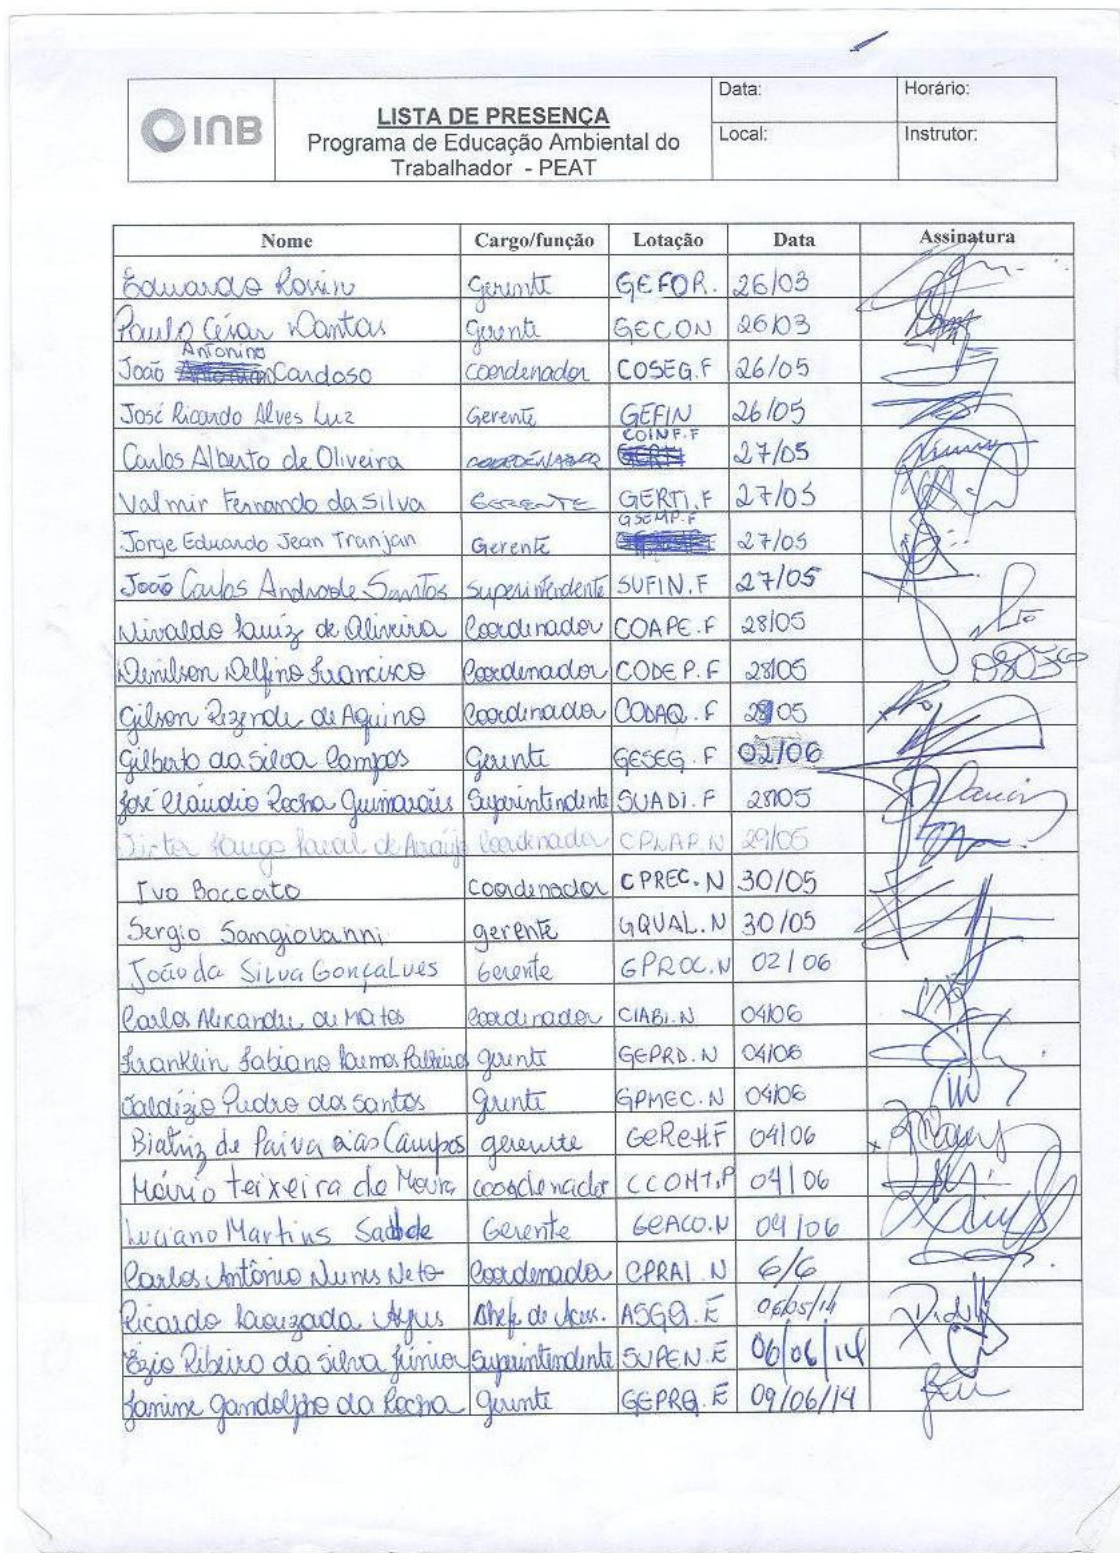 INB
LISTA DE PRESENÇA
Programa de Educação Ambiental do
Trabalhador - PEAT
Data:
Horário:
Local:
Instrutor:
Nome Cargo/função Lotação Data Assinatura
Eduardo Rosin Gerente GEFOR. 26/05
Paulo César Dantas Gerente GECON 26/03
João Antonino Cardoso coordenador COSEG.F 26/05
José Ricardo Alves Luz Gerente GEFIN 26/05
Carlos Alberto de Oliveira COORDENADOR COINF.F 27/05
Valmir Fernando da Silva GERENTE GERTI.F 27/05
Jorge Eduardo Jean Tranjan Gerente GSEMP.F 27/05
João Carlos Andrade Santos Superintendente SUFIN.F 27/05
Nivaldo Luiz de Oliveira Coordenador COAPE.F 28/05
Denilson Delfino Francisco Coordenador CODEP.F 28/05
Gilson Rezende de Aquino Coordenador CODAQ.F 28/05
Gilberto da Silva Campos Gerente GESEG.F 02/06
José Cláudio Rocha Guimarães Superintendente SUADI.F 28/05
de Araújo Coordenador CPLAP.N 29/05
Ivo Boccato Coordenador CPREC.N 30/05
Sergio Sangiovanni gerente GQUAL.N 30/05
João da Silva Gonçalves Gerente GPROC.N 02/06
Carlos Alexandre de Matos Coordenador CIABI.N 04/06
Franklin Fabiano gerente GEPRD.N 04/06
Valdizio Pedro dos Santos gerente GPMEC.N 04/06
Biatriz de Paiva Dias Campos gerente GEREH.F 04/06
Mário Teixeira de Moura coordenador CCOMT.P 04/06
Luciano Martins Gerente GEACO.N 04/06
Carlos Antônio Nunes Neto Coordenador CPRAI.N 6/6
Ricardo Chefe de Asses. ASGQ.E 06/05/14
Ézio Ribeiro da Silva Júnior Superintendente SUPEN.E 06/06/14
Janine Gandolpho da Rocha Gerente GEPRG.E 09/06/14